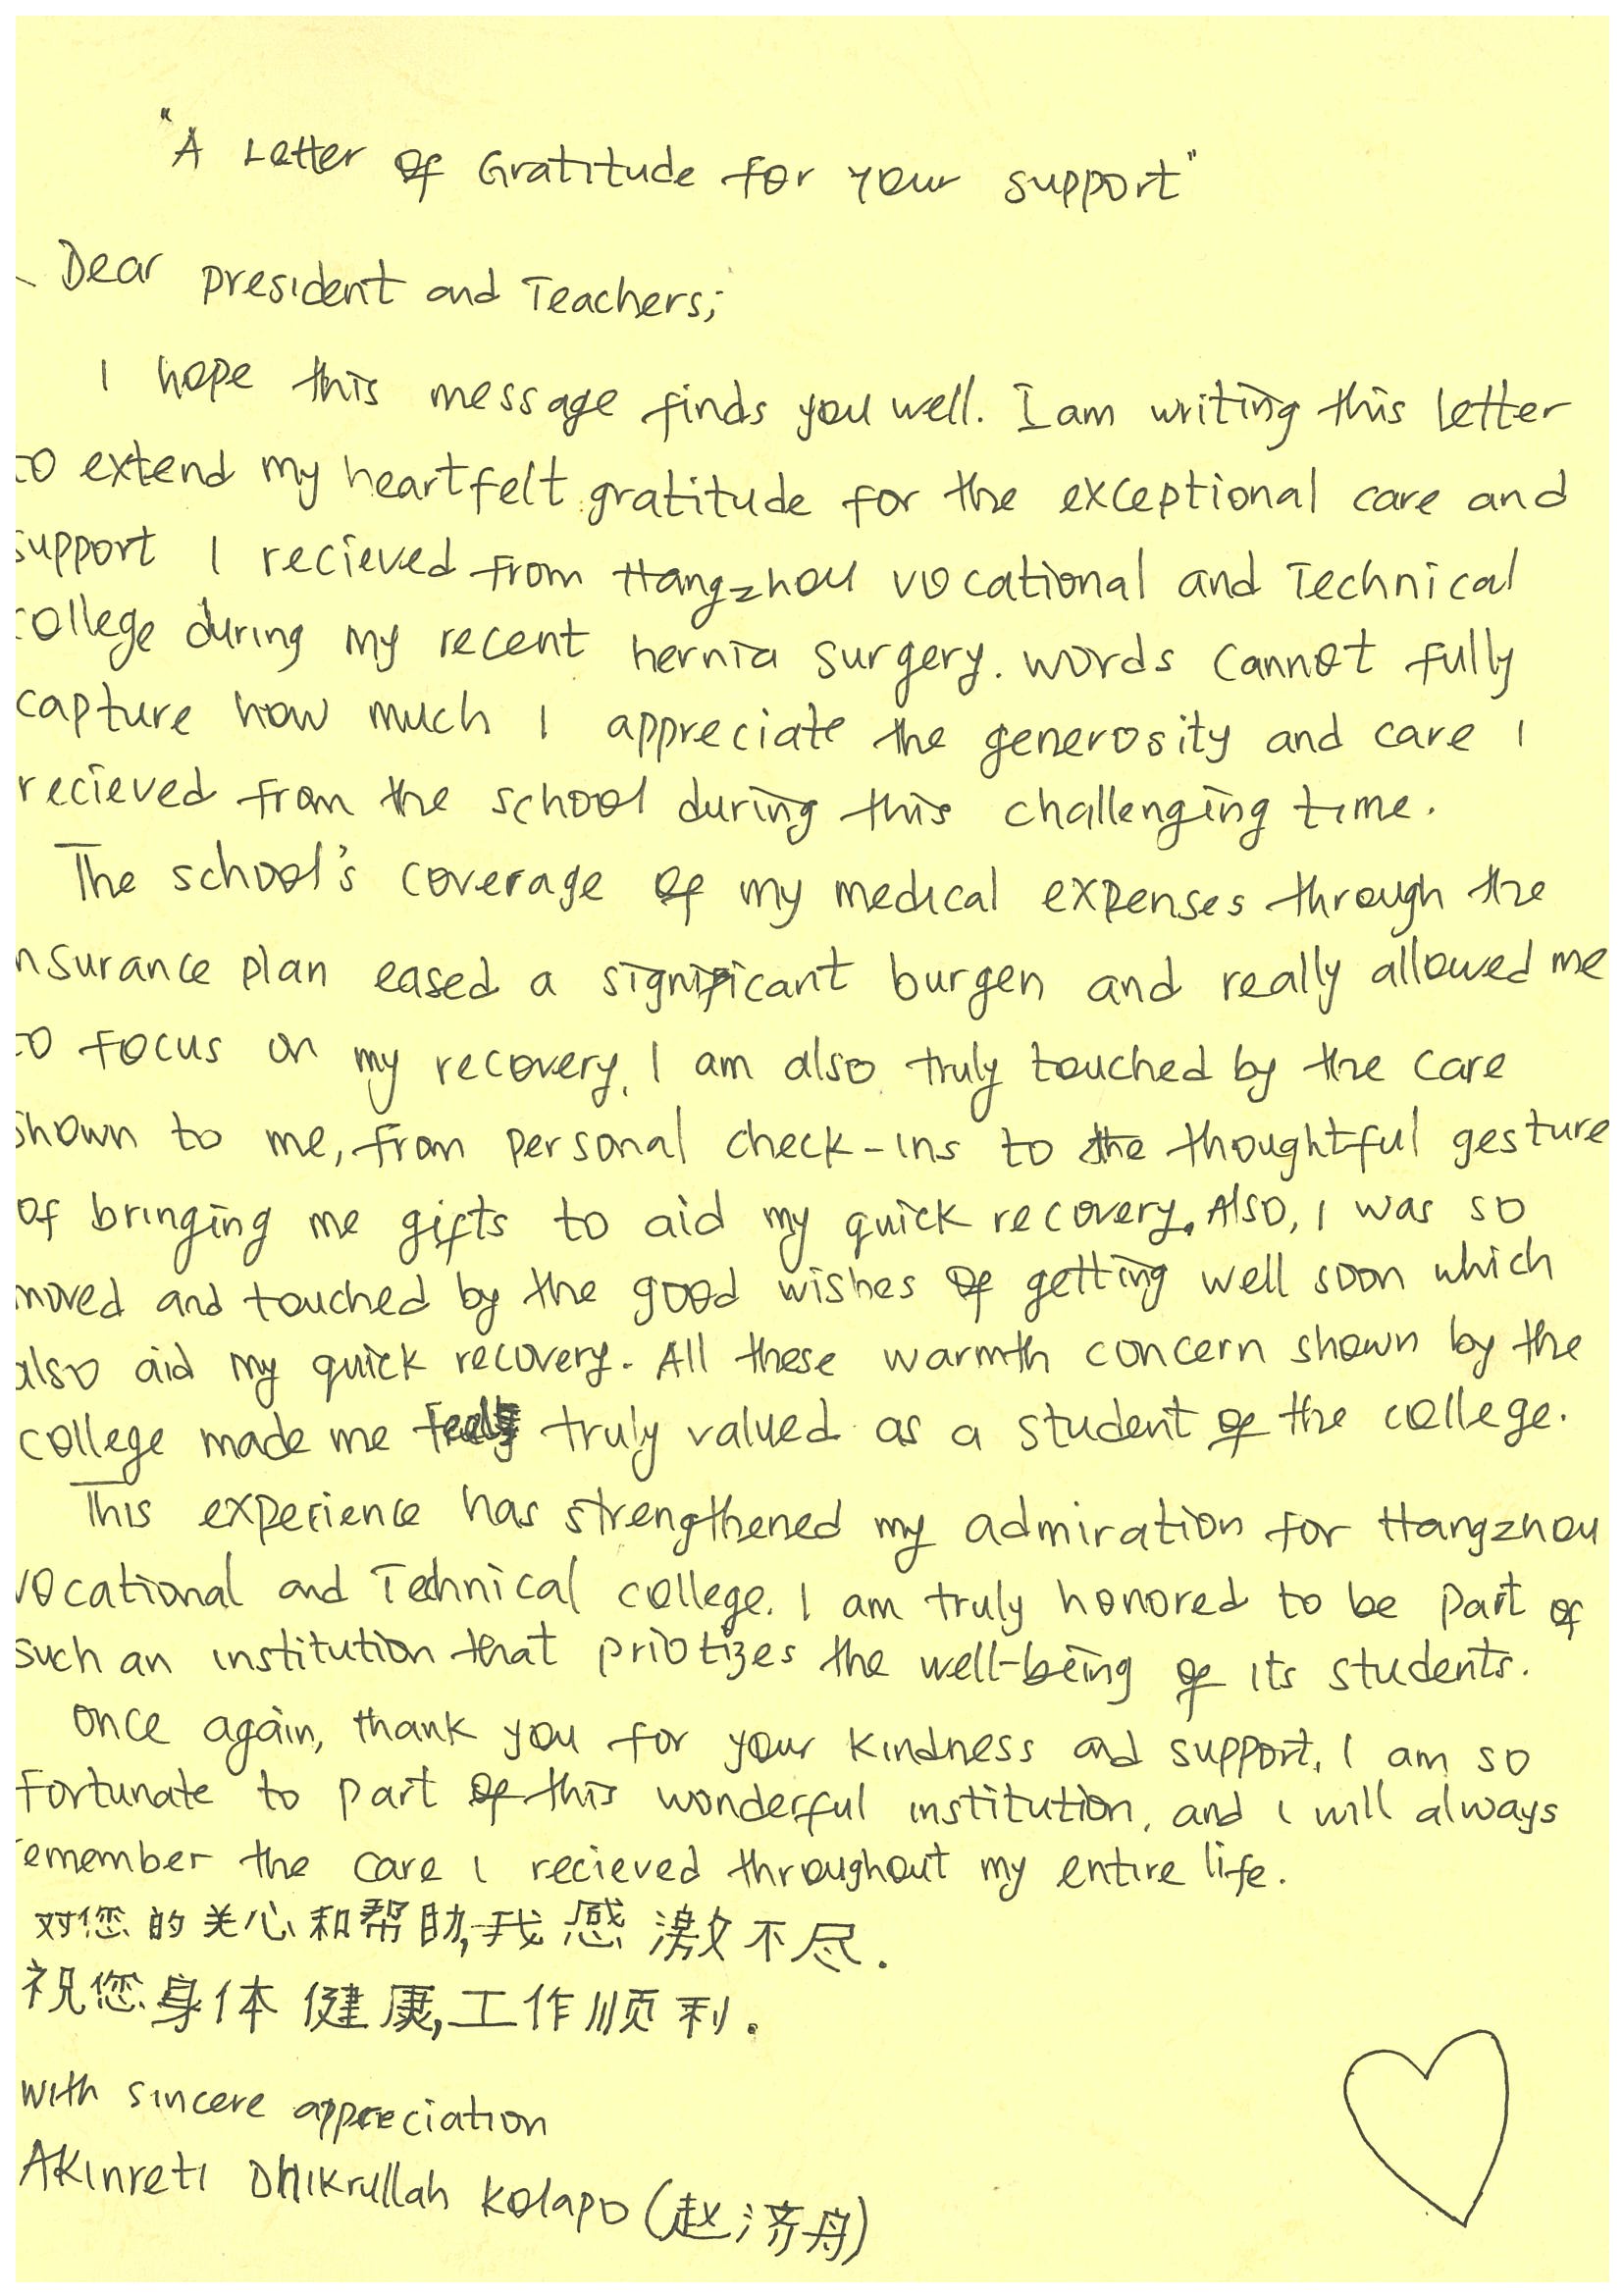 "A Letter of Gratitude for your support"
Dear president and Teachers;
I hope this message finds you well. I am writing this letter
to extend my heartfelt gratitude for the exceptional care and
support I recieved from Hangzhou vocational and Technical
college during my recent hernia surgery. words cannot fully
capture how much I appreciate the generosity and care I
recieved from the school during this challenging time.
The school's coverage of my medical expenses through the
nsurance plan eased a significant burgen and really allowed me
to focus on my recovery. I am also truly touched by the care
shown to me, from personal check-ins to the thoughtful gesture
of bringing me gifts to aid my quick recovery. Also, I was so
moved and touched by the good wishes of getting well soon which
also aid my quick recovery. All these warmth concern shown by the
college made me truly valued as a student of the college.
This experience has strengthened my admiration for Hangzhou
vocational and Technical college. I am truly honored to be part of
such an institution that priotizes the well-being of its students.
Once again, thank you for your kindness and support. I am so
fortunate to part of this wonderful institution, and i will always
remember the care I recieved throughout my entire life.
对您的关心和帮助,我感激不尽.
祝您身体健康,工作顺利.
with sincere appreciation
Akinreti Dhikrullah Kolapo (赵济舟)